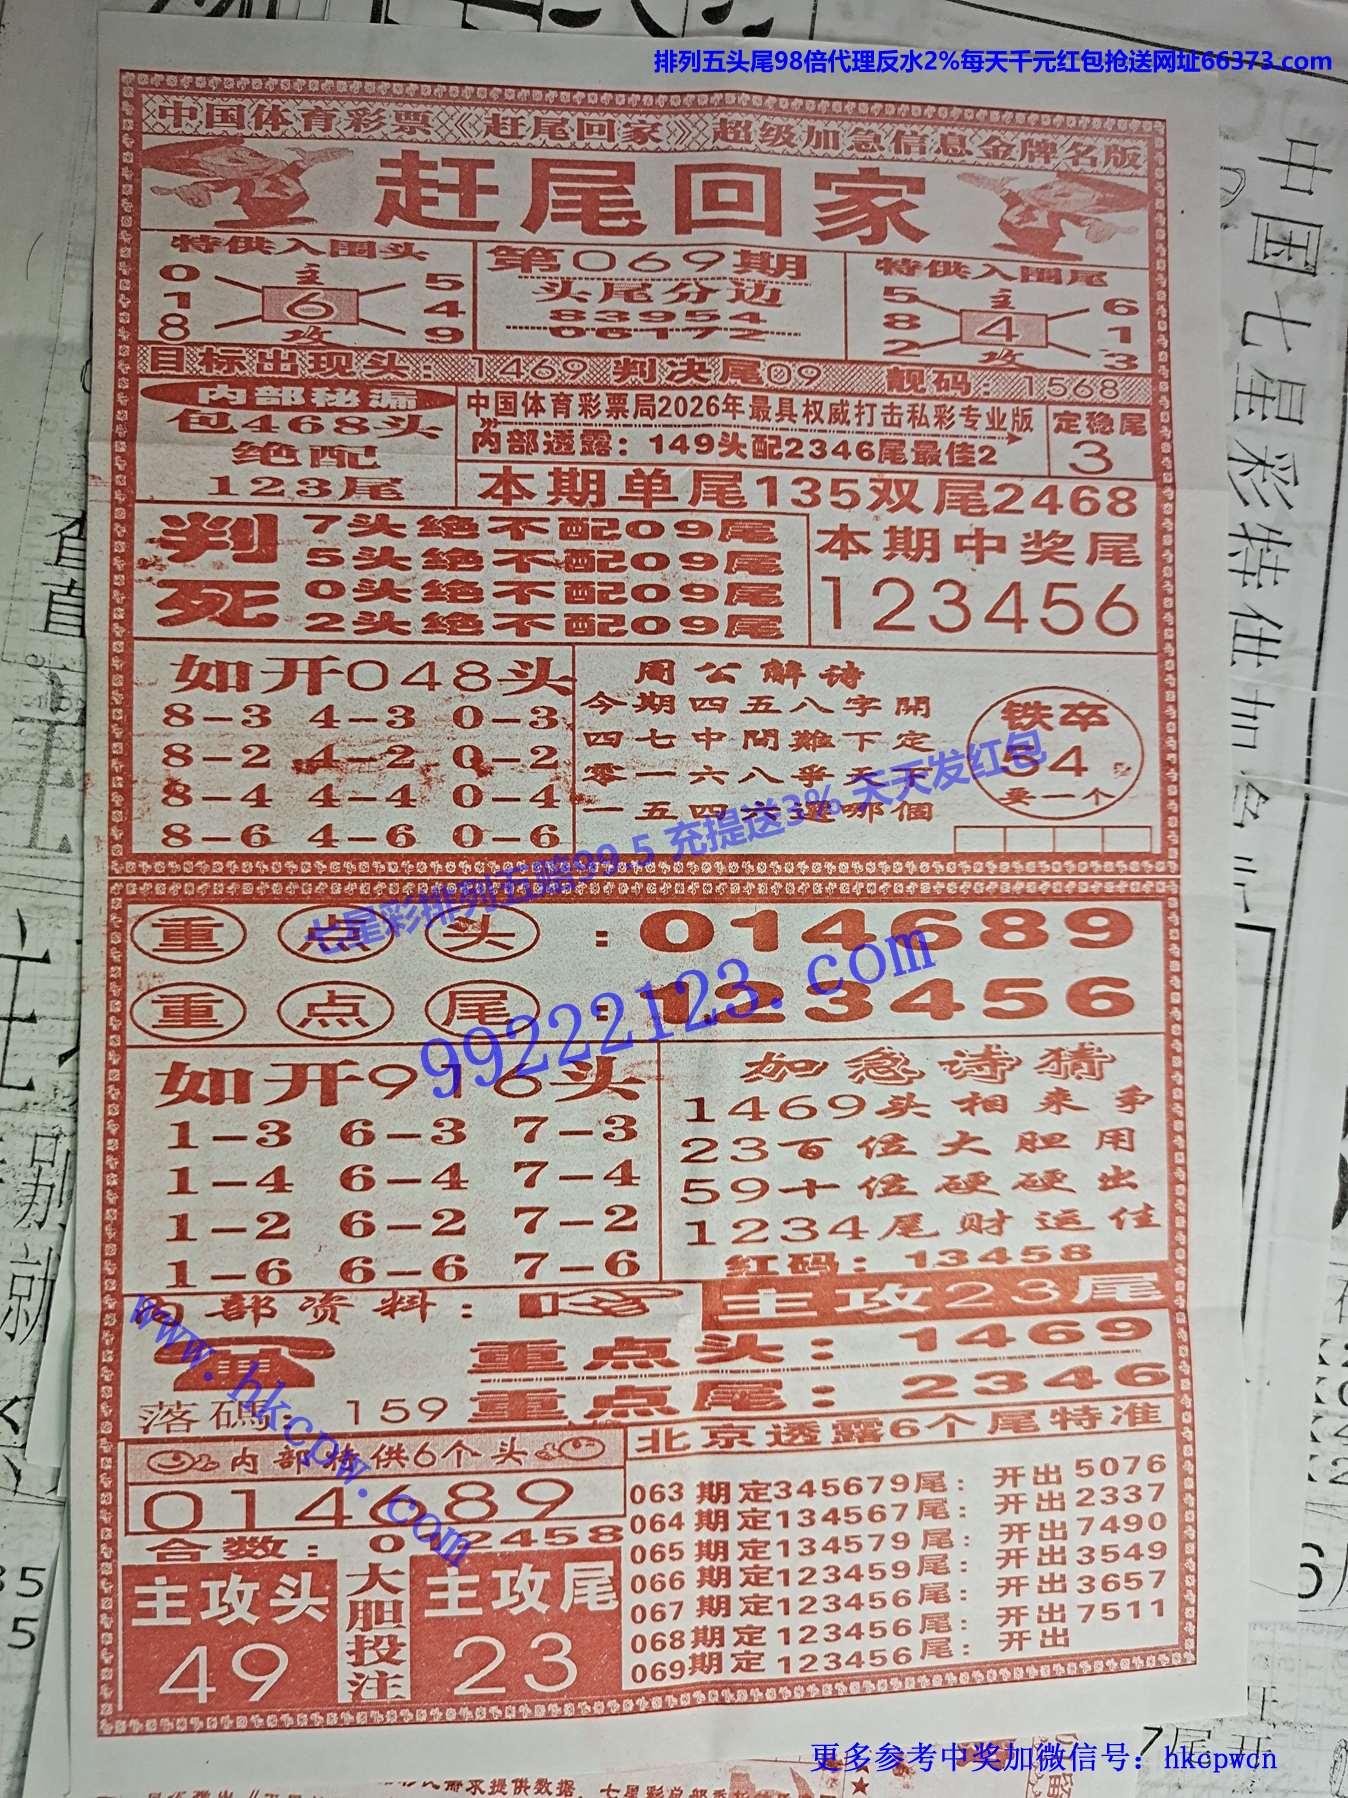 排列五头尾98倍代理反水2%每天千元红包抢送网址66373.com
中国体育彩票《赶尾回家》超级加急信息金牌名版
赶尾回家
特供入围头
0 主 5
1 6 4
8 攻 9
第069期
头尾分边
83954
06172
特供入围尾
5 主 6
8 4 1
2 攻 3
目标出现头：1469 判决尾09 靓码：1568
内部秘漏
包468头
绝配
123尾
中国体育彩票局2026年最具权威打击私彩专业版
内部透露：149头配2346尾最佳2
定稳尾
3
本期单尾135双尾2468
判死
7头绝不配09尾
5头绝不配09尾
0头绝不配09尾
2头绝不配09尾
本期中奖尾
123456
如开048头
8-3 4-3 0-3
8-2 4-2 0-2
8-4 4-4 0-4
8-6 4-6 0-6
周公解诗
今期四五八字開
四七中間難下定
零一六八爭天下
一五四六選哪個
铁卒
54
要一个
七星彩排列五赔99.5 充提送3% 天天发红包
重点头：014689
重点尾：123456
99222123.com
如开916头
1-3 6-3 7-3
1-4 6-4 7-4
1-2 6-2 7-2
1-6 6-6 7-6
加急诗猜
1469头相来争
23百位大胆用
59十位硬硬出
1234尾财运佳
红码：13458
内部资料：
主攻23尾
重点头：1469
重点尾：2346
落碼：159
www.hkcpw.com
内部特供6个头
014689
合数：012458
主攻头
49
大胆投注
主攻尾
23
北京透露6个尾特准
063期定345679尾：开出5076
064期定134567尾：开出2337
065期定134579尾：开出7490
066期定123459尾：开出3549
067期定123456尾：开出3657
068期定123456尾：开出7511
069期定123456尾：开出
更多参考中奖加微信号：hkcpwcn
中国七星彩特供加急